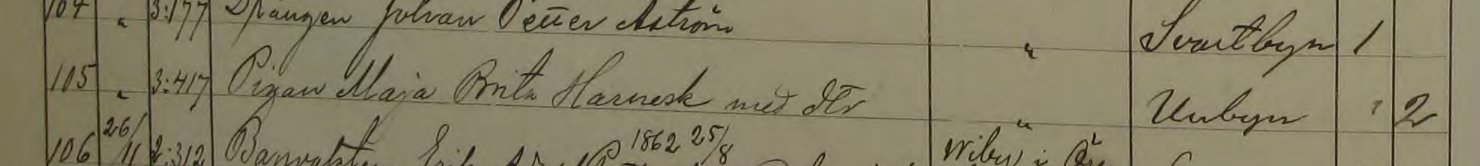 104 " 3:177 Drängen Johan Petter Åström " Svartbyn 1
105 " 3:417 Pigan Maja Brita Harnesk med dtr " Unbyn " 2
106 26/11 2:312 Banvakten Erik 1862 25/8 i